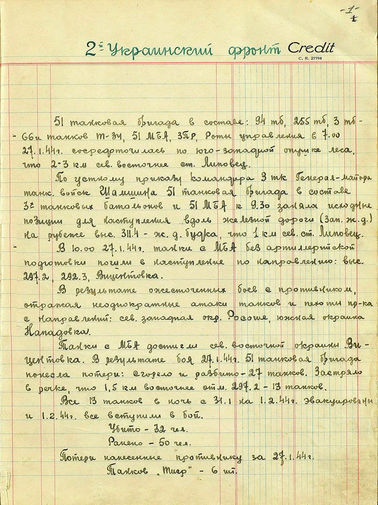 -1-
2й Украинский фронт Credit
C. R. 27798
51 танковая бригада в составе: 94 тб, 255 тб, 3 тб -
- 66и танков Т-34, 51 МБА, 3ПР, Роты управления в 7.00
27.1.44г. сосредоточилась по юго-западной опушке леса,
что 2-3 км сев. восточнее ст. Липовец.
По устному приказу командира 3 тк Генерал-майора
танк. войск Шамшина 51 танковая бригада в составе
3х танковых батальонов и 51 МБА к 9.30 заняла исходные
позиции для наступления вдоль железной дороги (зап. ж.д.)
на рубеже выс. - ж.д. будка, что 1 км сев. ст. Липовец.
В 10.00 27.1.44г. танки с МБА без артиллерийской
подготовки пошли в наступление по направлению: выс.
297.2, 292.3, Вицентовка.
В результате ожесточенных боев с противником,
отражая неоднократные атаки танков и пехоты пр-ка
с направлений: сев. западная окр. Росоше, южная окраина
Нападовка.
Танки с МБА достигли сев. восточной окраины Ви-
центовка. В результате боя 27.1.44г. 51 танковая бригада
понесла потери: сгорело и разбито - 27 танков. Застряло
в речке, что 1,5 км восточнее отм. 297.2 - 13 танков.
Все 13 танков в ночь с 31.1 на 1.2.44г. эвакуированы
и 1.2.44г. все вступили в бой.
Убито - 32 чел.
Ранено - 50 чел.
Потери нанесенные противнику за 27.1.44г.
Танков „Тигр" - 6 шт.